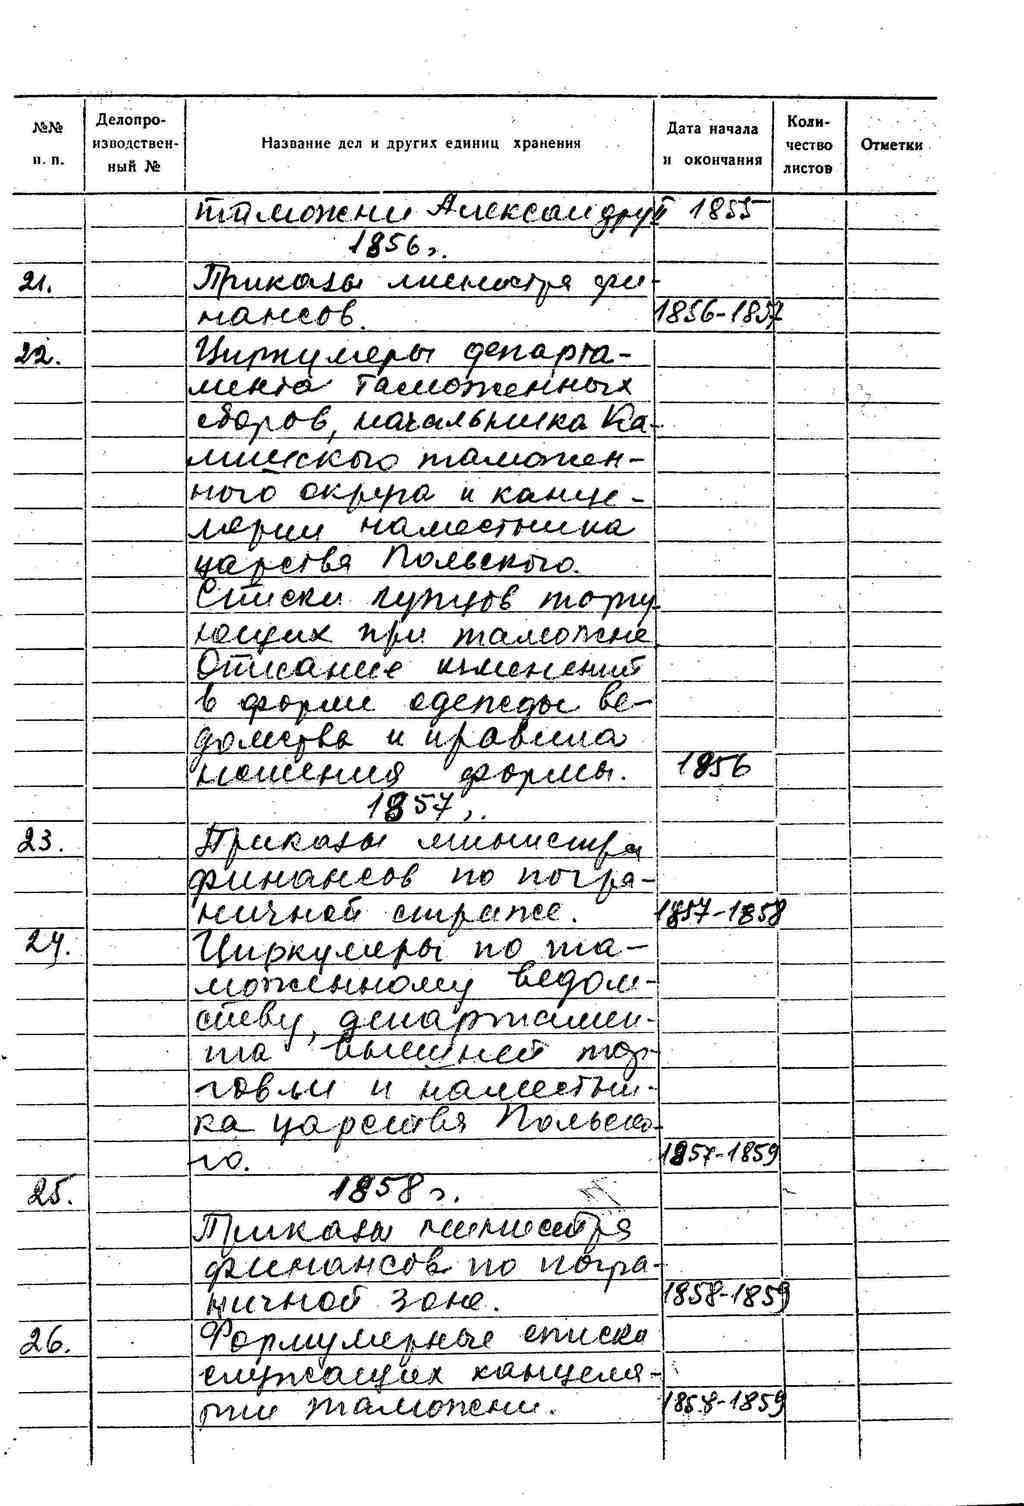 №№ п. п.
Делопро-изводствен-ный №
Название дел и других единиц хранения
Дата начала и окончания
Коли-чество листов
Отметки
таможни Александру II 1855
1856 г.
21. Приказы министра фи-
нансов. 1856-1857
22. Циркуляры департа-
мента таможенных
сборов, начальника Ка-
лишского таможен-
ного округа и канце-
лярии наместника
царства Польского.
Списки купцов торгу-
ющих при таможне
Описание изменений
в форме одежды ве-
домства и правила
ношения формы. 1856
1857 г.
23. Приказы министра
финансов по погра-
ничной страже. 1857-1858
24. Циркуляры по та-
моженному ведом-
ству, департамен-
та внешней тор-
говли и наместни-
ка царства Польско-
го. 1857-1859
25. 1858 г.
Приказы министра
финансов по погра-
ничной зоне. 1858-1859
26. Формулярные списки
служащих канцеля-
рии таможни. 1858-1859